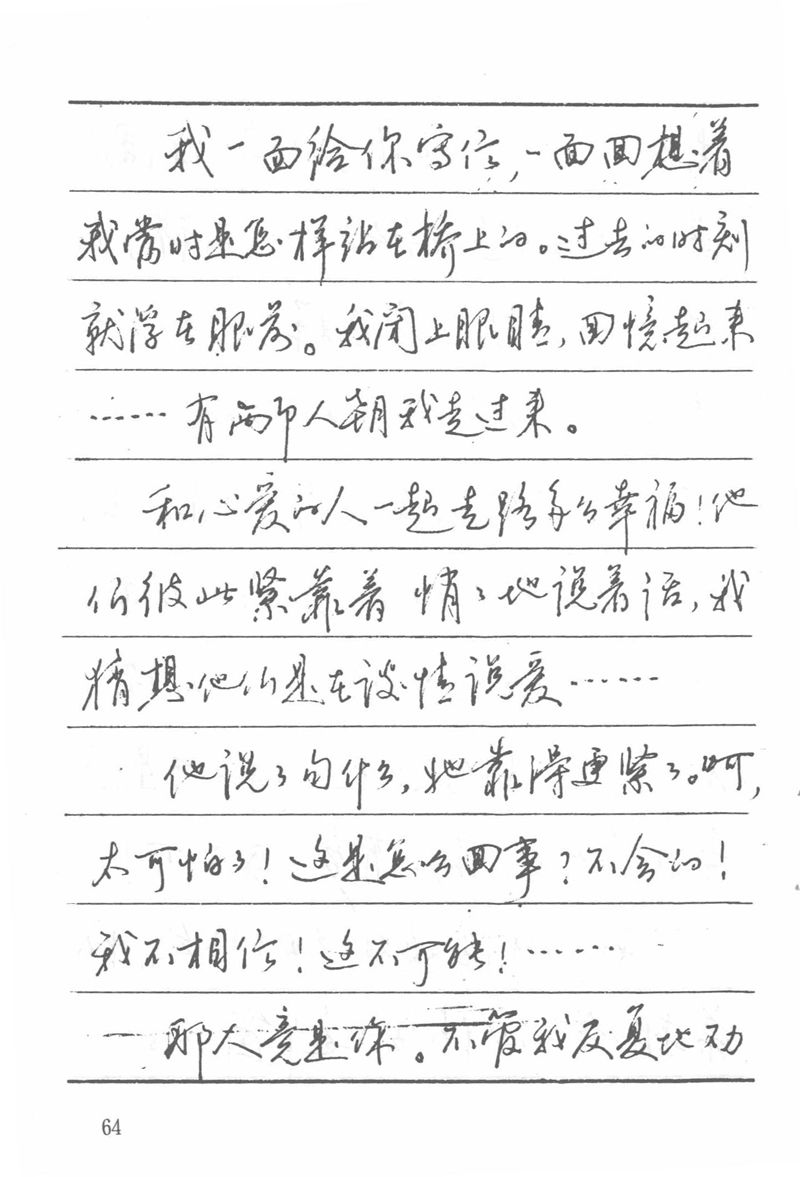 我一面给你写信，一面回想着
我当时是怎样站在桥上的。过去的时刻
就浮在眼前。我闭上眼睛，回憶起来
……有两个人朝我走过来。
和心爱的人一起走路多么幸福！他
们彼此紧靠着悄悄地说着话，我
猜想他们是在谈情说爱……
他说了句什么，她靠得更紧了。呵，
太可怕了！这是怎么回事？不会的！
我不相信！这不可能！……
那人竟是你。不管我反复地劝
64